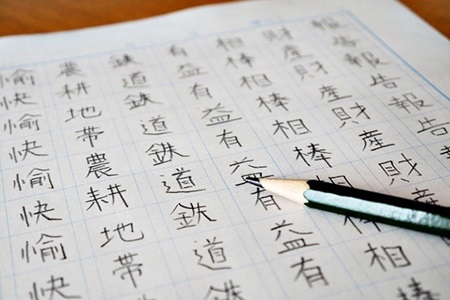 報告報告報告
財産財産財産財産
相棒相棒相棒相相棒
有益有益有益有益有
鉄道鉄道鉄道鉄道鉄
農耕地帯農耕地帯
愉快愉快愉快愉快